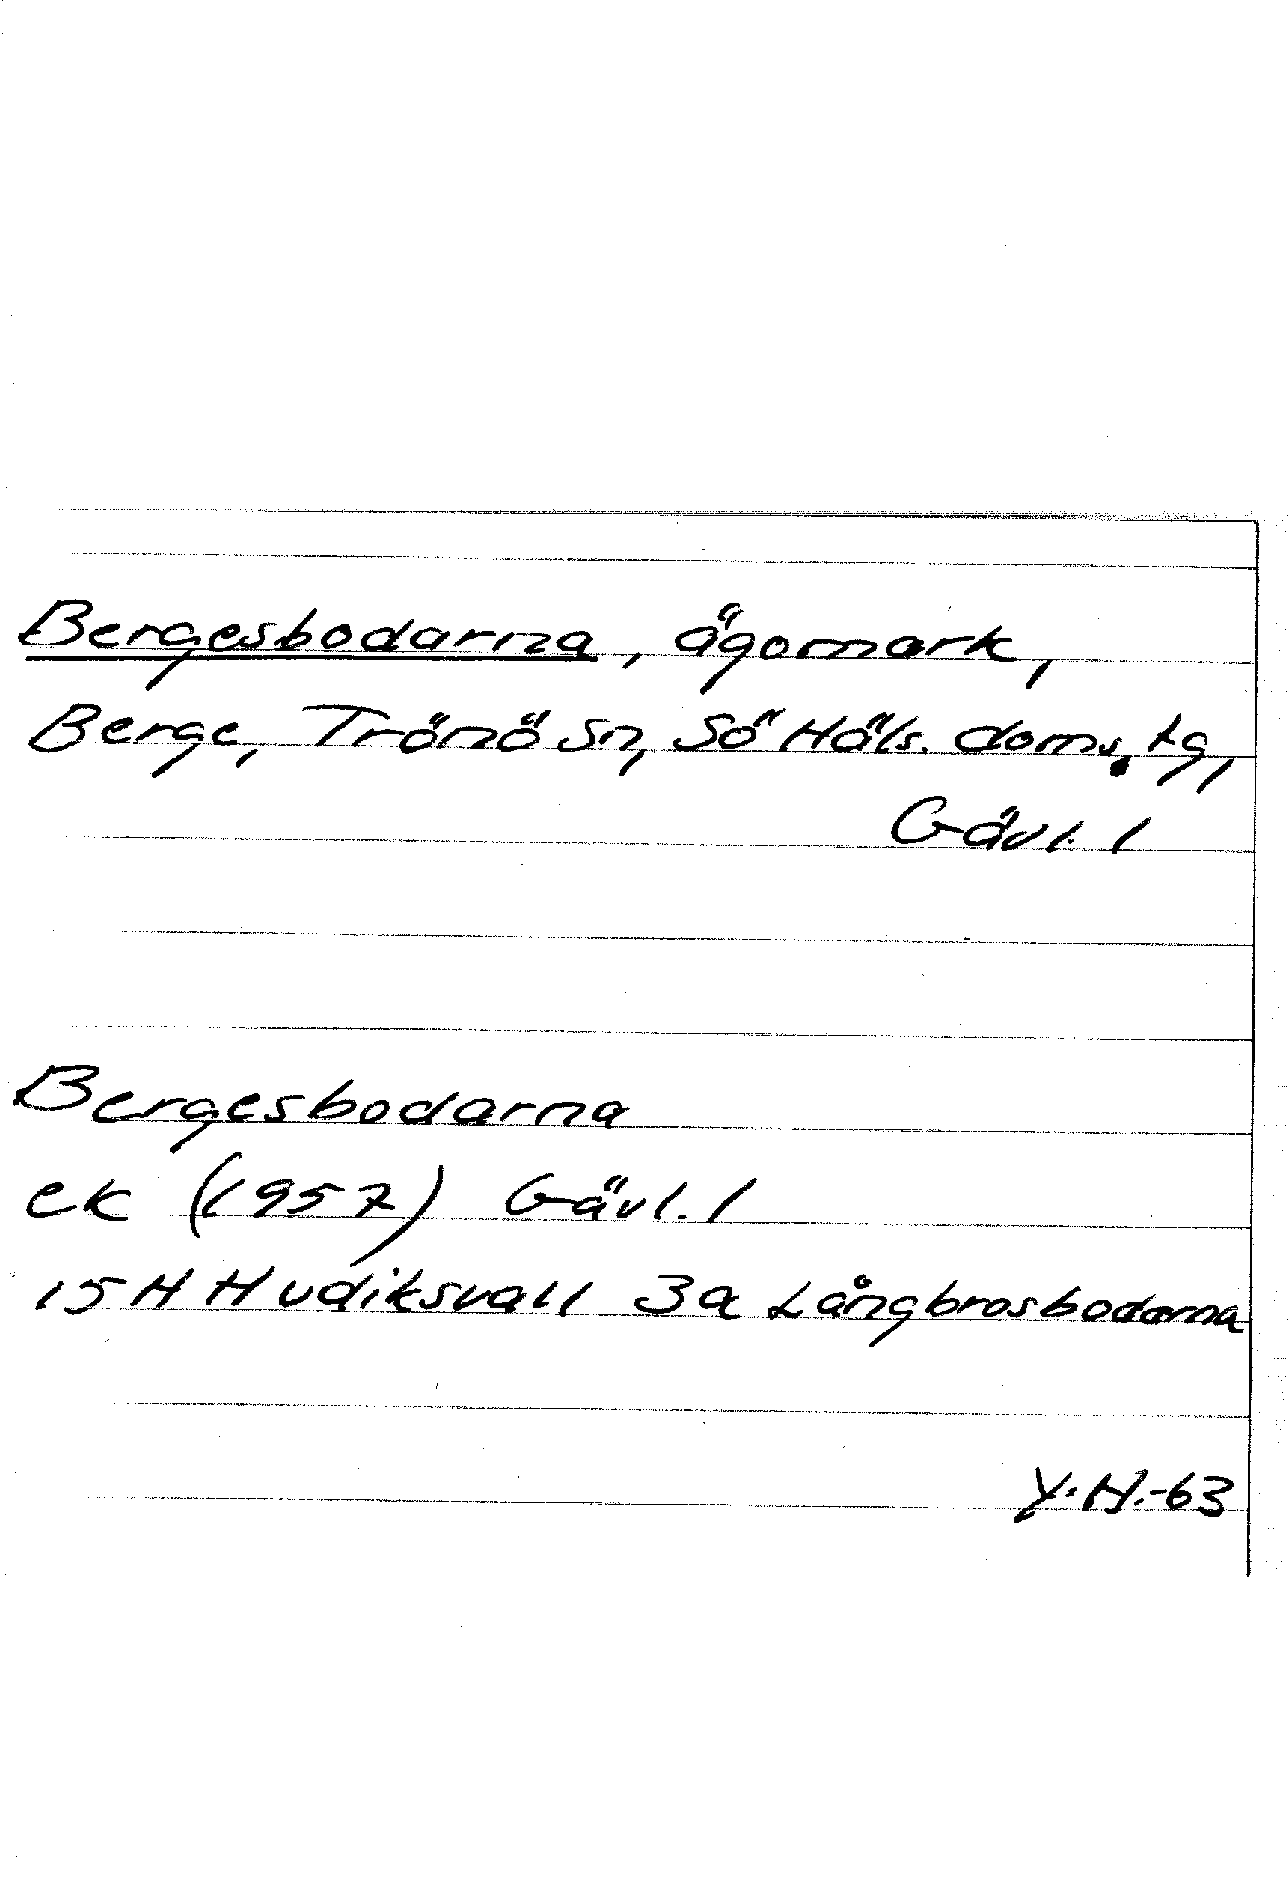 Bergesbodarna, ägomark,
Berge, Trönö Sn, Sö Häls. doms. tg,
Gävl. l
Bergesbodarna
ek (1957) Gävl. l
15H Hudiksvall 3a Långbrosbodarna
Y.H.-63